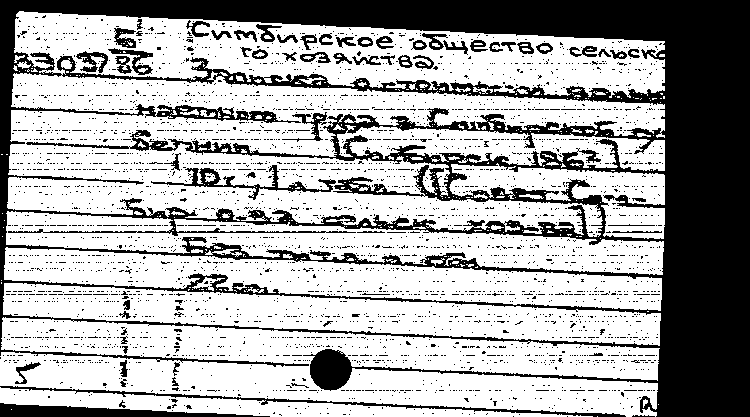 Симбирское общество сельско
го хозяйства.
3303786 Записка о стоимости
наемного труда в Симбирской гу
бернии. [Симбирск, 186?].
10 с.; 1 л. табл. ([Совет Сим-
бир. о-ва сельск. хоз-ва])
Без тит. л. и обл.
22 см.
5